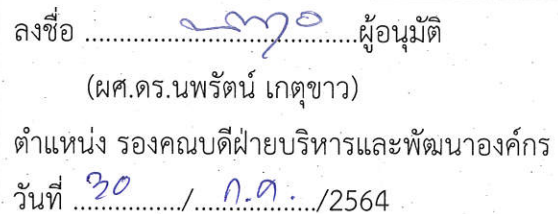 ลงชื่อ ........................................ผู้อนุมัติ
(ผศ.ดร.นพรัตน์ เกตุขาว)
ตำแหน่ง รองคณบดีฝ่ายบริหารและพัฒนาองค์กร
วันที่ 30/ก.ค./2564